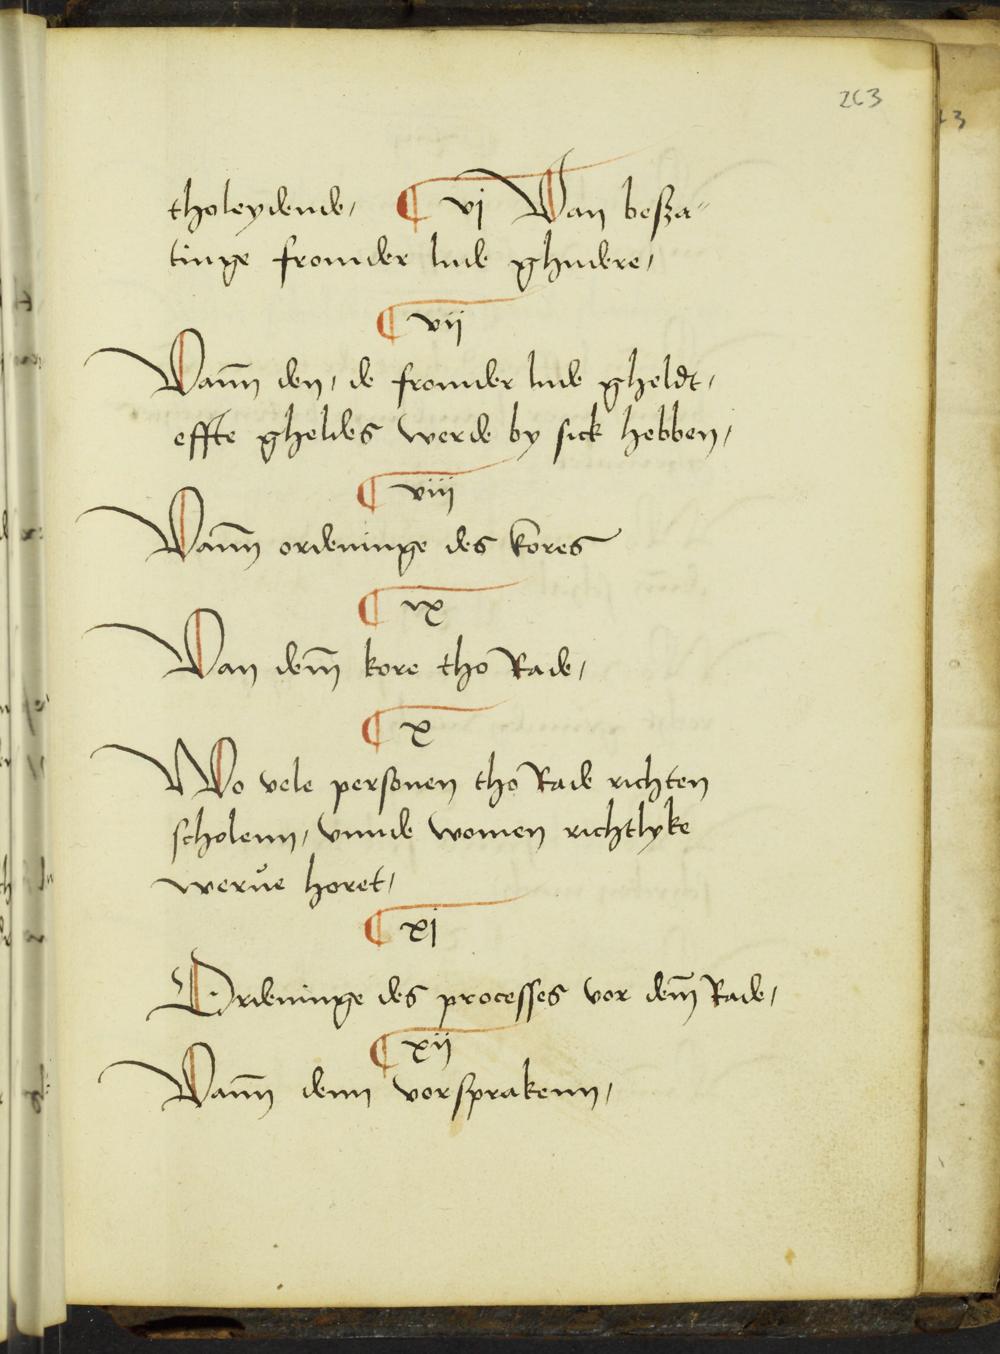 263
tholeydende,   ¶ vj Van besza-
tinge fromder lude ghudere,
¶ vij
Vann den, de fromder lude gheldt,
effte gheldes werde by sick hebben,
¶ viij
Vann ordeninge des kores
¶ ix
Van dem̄ kore tho Rade,
¶ x
Wo vele personen tho Rade richten
scholenn, vnnde women richtlyke
werue horet,
¶ xj
Ordeninge des processes vor dem̄ Rade,
¶ xij
Vann denn vorsprakenn,